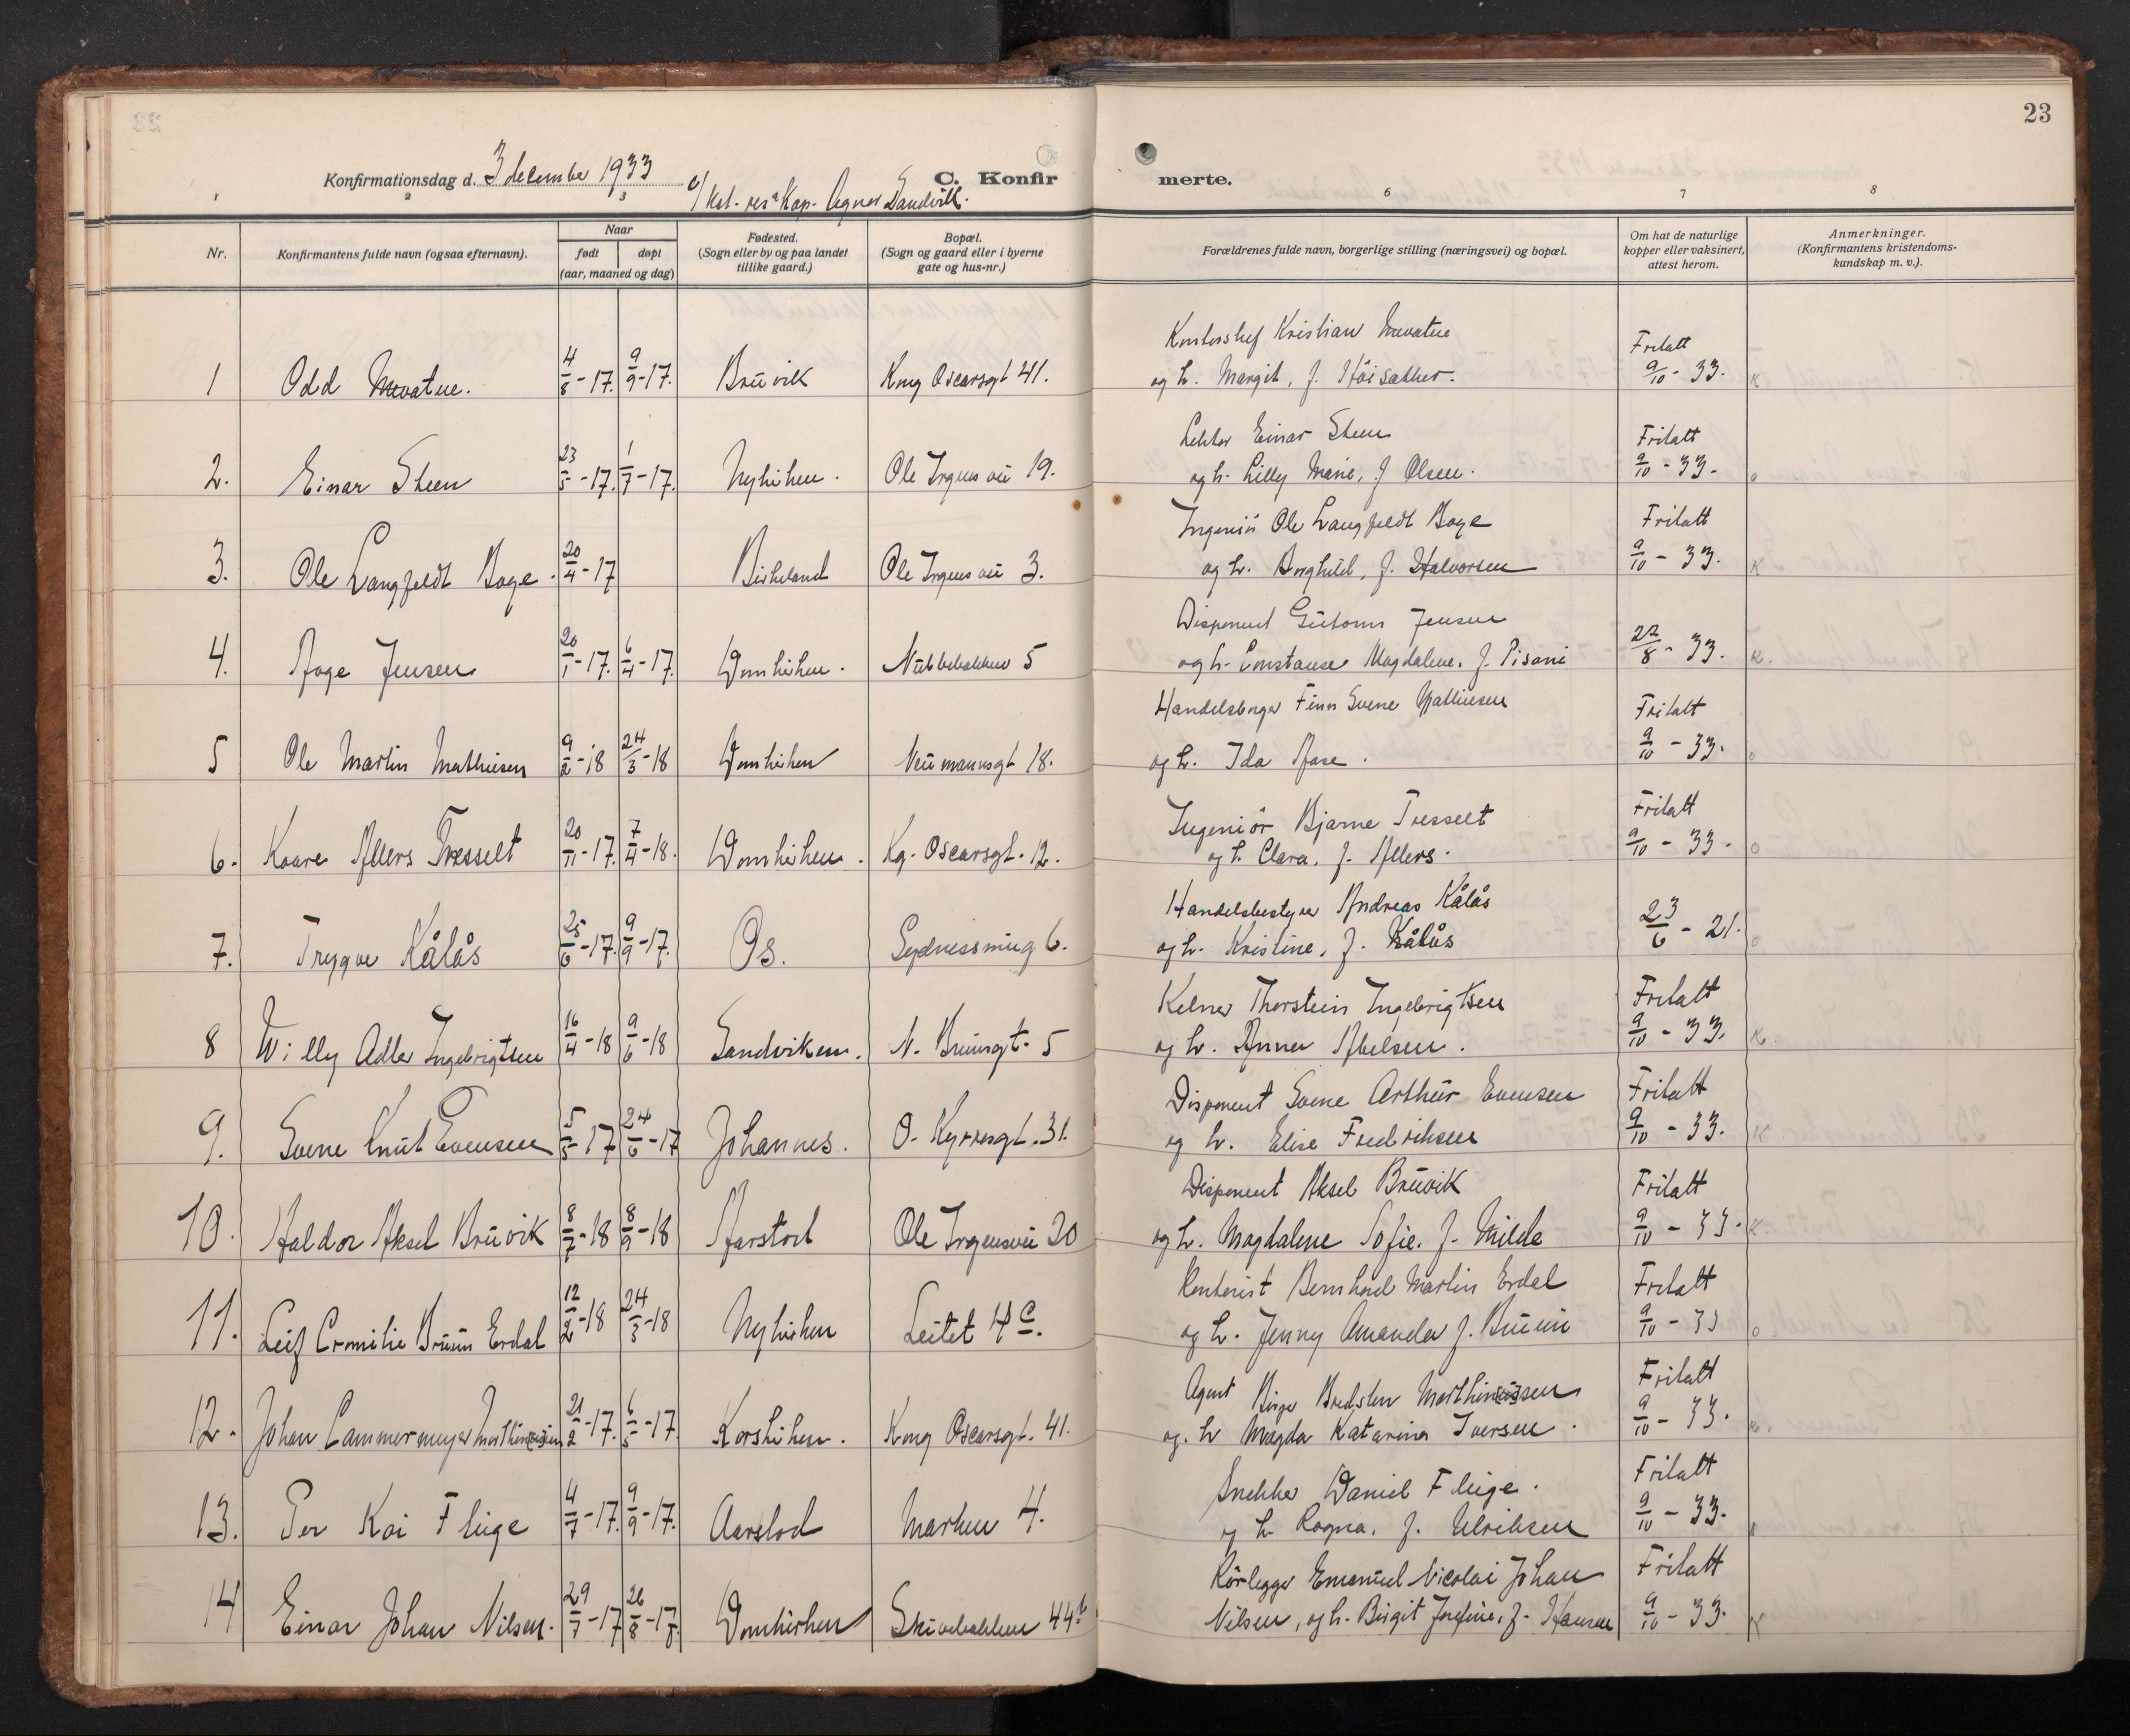 23
Konfirmationsdag d. 3 december 1933
C. Konfirmerte.
v/ Kst. res. Kap. Agnar Sandvik.
2 3 6 7 8
Nr.
Konfirmantens fulde navn (ogsaa efternavn).
Naar
født døpt
(aar, maaned og dag)
Fødested.
(Sogn eller by og paa landet
tillike gaard.)
Bopæl.
(Sogn og gaard eller i byerne
gate og hus-nr.)
Forældrenes fulde navn, borgerlige stilling (næringsvei) og bopæl.
Om hat de naturlige
kopper eller vaksinert,
attest herom.
Anmerkninger.
(Konfirmantens kristendoms-
kundskap m. v.).
Kontorchef Kristian Mevatne Fritatt
1 Odd Mevatne. 4/8-17. 9/9-17. Brüvik Kong Oscarsgt 41. og h. Margit, f. Höisæther. 9/10-33. K
Lektor Einar Steen Fritatt
2. Einar Steen 23/5-17. 1/7-17. Nykirken. Ole Irgens vei 19. og h. Lilly Marie, f Olsen. 9/10-33. o
Ingeniör Ole Langfeldt Boge Fritatt
3. Ole Langfeldt Boge. 20/4-17 Birkeland Ole Irgens vei 3. og h. Borghild, f. Halvorsen 9/10-33. K
Disponent Guttorm Jensen
4. Aage Jensen 20/1-17. 6/4-17. Domkirken. Nübbebakken 5 og h. Constanse Magdalene. f. Pisani 22/8-33. K.
Handelsborger Finn Sverre Mathiesen Fritatt
5 Ole Martin Mathiesen 9/2-18 24/3-18 Domkirken Neümannsgt 18. og h. Ida Aase. 9/10-33. o
Ingeniör Bjarne Tresselt Fritatt
6. Kaare Allers Tresselt 20/11-17. 7/4-18. Domkirken. Kg. Oscarsgt. 12. og h. Clara. f. Allers. 9/10-33. o
Handelsbestyrer Andreas Kålås
7. Trygve Kålås 25/6-17. 9/9-17. Os. Sydnessmug 6. og h. Kristine, f. Kålås 23/6-21. o
Kelner Thorstein Ingebrigtsen Fritatt
8 Willy Adler Ingebrigtsen 16/4-18 9/6-18 Sandviken. N. Brünsgt. 5 og h. Anna Abelsen. 9/10-33, K.
Disponent Sverre Arthur Evensen Fritatt
9. Sverre Knüt Evensen 5/5-17 24/6-17 Johannes. O. Kyrresgt. 31. og h. Elise Fredriksen 9/10-33. K
Disponent Aksel Brüvik Fritatt
10. Haldor Aksel Brüvik 8/7-18 8/9-18 Aarstad Ole Irgensvei 20 og h. Magdalene Sofie. f. Milde 9/10-33. K.
Kontorist Bernhard Martin Erdal Fritatt
11. Leif Brüün Erdal 12/2-18 24/3-18 Nykirken Leitet 4 c. og h. Jenny Amanda f. Brüün 9/10-33 o
Agent Birger Mortensen Fritatt
12. Johan Cammermeyer 21/2-17. 6/5-17. Korskirken. Kong Oscarsgt. 41. og. h Magda Katarina Iversen. 9/10-33. K.
Snekker Daniel Fleige. Fritatt
13. Per Kai Fleige 4/7-17. 9/9-17. Aarstad Marken 4. og h. Ragna, f. Ulriksen 9/10-33.
Rörlegger Emanuel Nicolai Johan Fritatt
14 Einar Johan Nilsen. 29/7-17 26/8-17. Domkirken Skivebakken 44 b Nilsen, og h. Birgit Josefine, f. Hansen 9/10-33. K